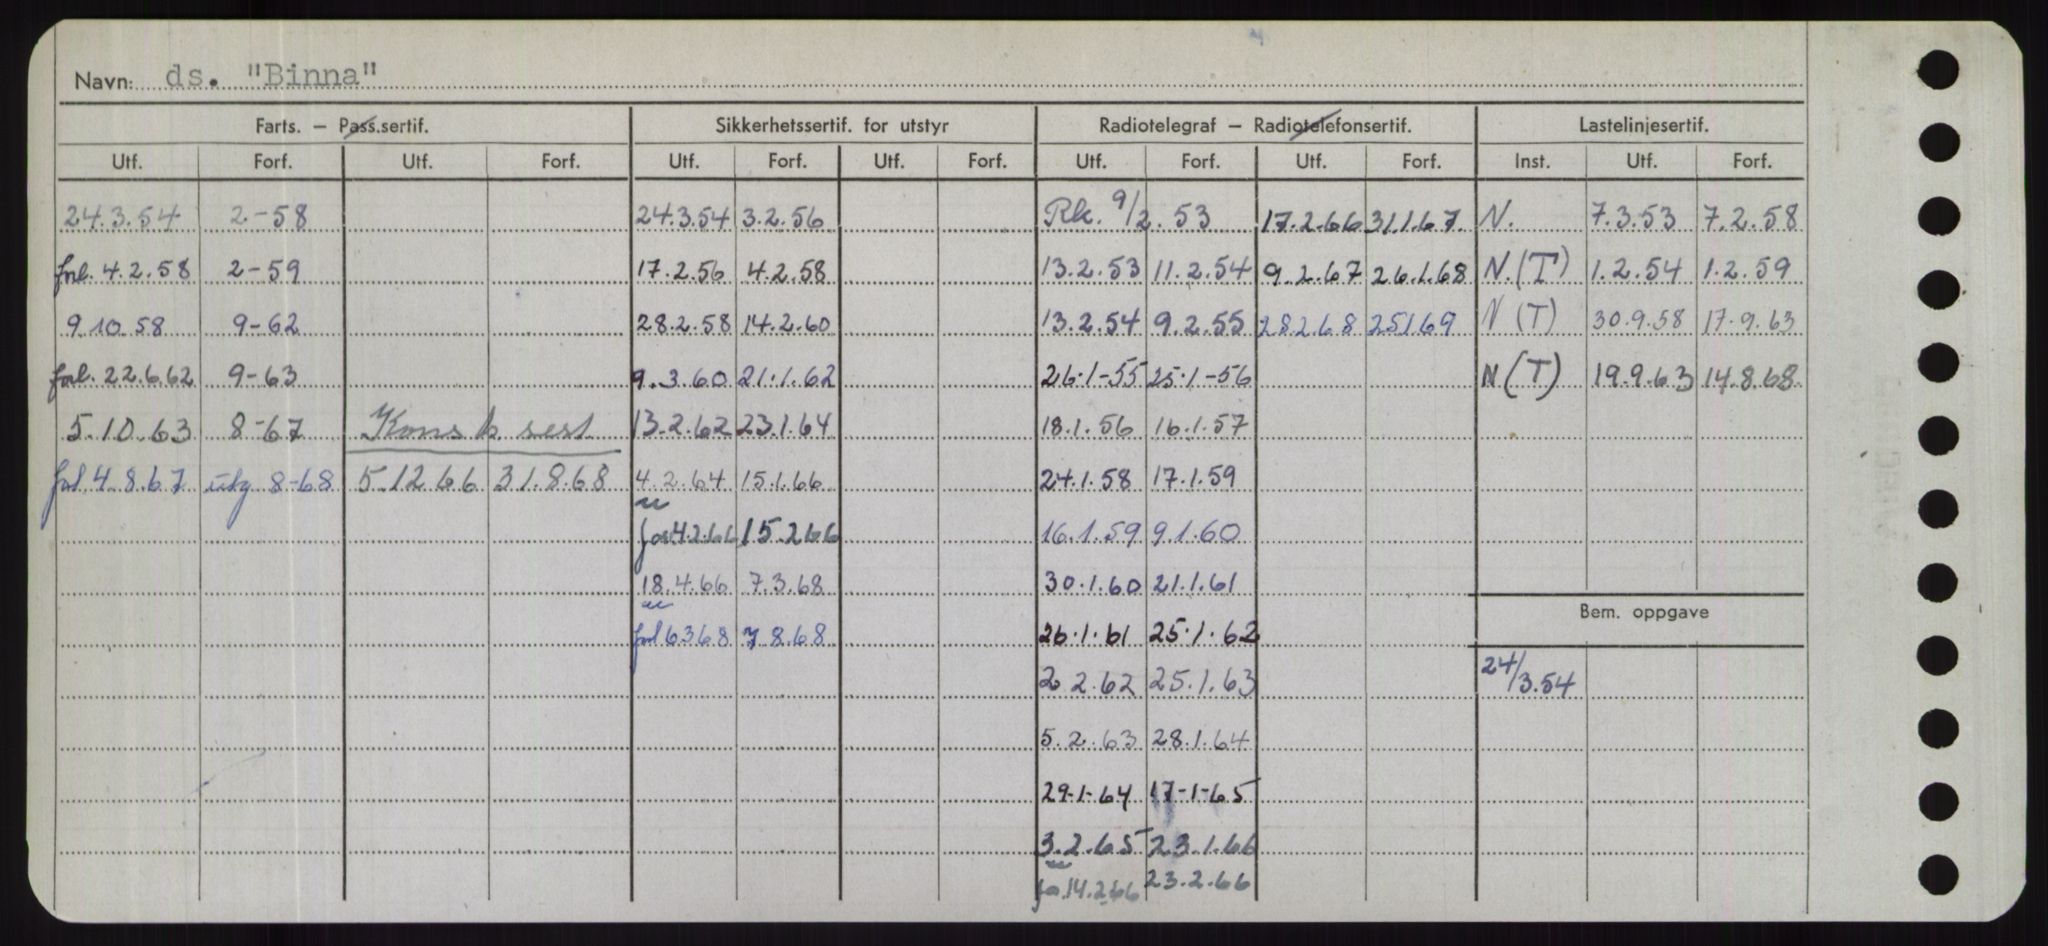 Navn: ds. "Binna"
Farts. – Pass.sertif. Sikkerhetssertif. for utstyr Radiotelegraf – Radiotelefonsertif. Lastelinjesertif.
Utf. Forf. Utf. Forf. Utf. Forf. Utf. Forf. Utf. Forf. Utf. Forf. Inst. Utf. Forf.
24.3.54 2-58 24.3.54 3.2.56 Rk. 9/2.53 17.2.66 31.1.67 N. 7.3.53 7.2.58
forl. 4.2.58 2-59 17.2.56 4.2.58 13.2.53 11.2.54 9.2.67 26.1.68 N.(T) 1.2.54 1.2.59
9.10.58 9-62 28.2.58 14.2.60 13.2.54 9.2.55 28.2.68 25.1.69 N (T) 30.9.58 17.9.63
forl. 22.6.62 9-63 9.3.60 21.1.62 26.1-55 25.1-56 N (T) 19.9.63 14.8.68
5.10.63 8-67 Konsk sert 13.2.62 23.1.64 18.1.56 16.1.57
forl. 4.8.67 utg 8-68 5.12.66 31.8.68 4.2.64 15.1.66 24.1.58 17.1.59
for 4.2.66 15.2.66 16.1.59 9.1.60
18.4.66 7.3.68 30.1.60 21.1.61
Bem. oppgave
forl 6.3.68 7.8.68 26.1.61 25.1.62
2.2.62 25.1.63 24/3.54
5.2.63 28.1.64
29.1-64 17-1-65
3.2.65 23.1.66
for. 14.2.66 23.2.66